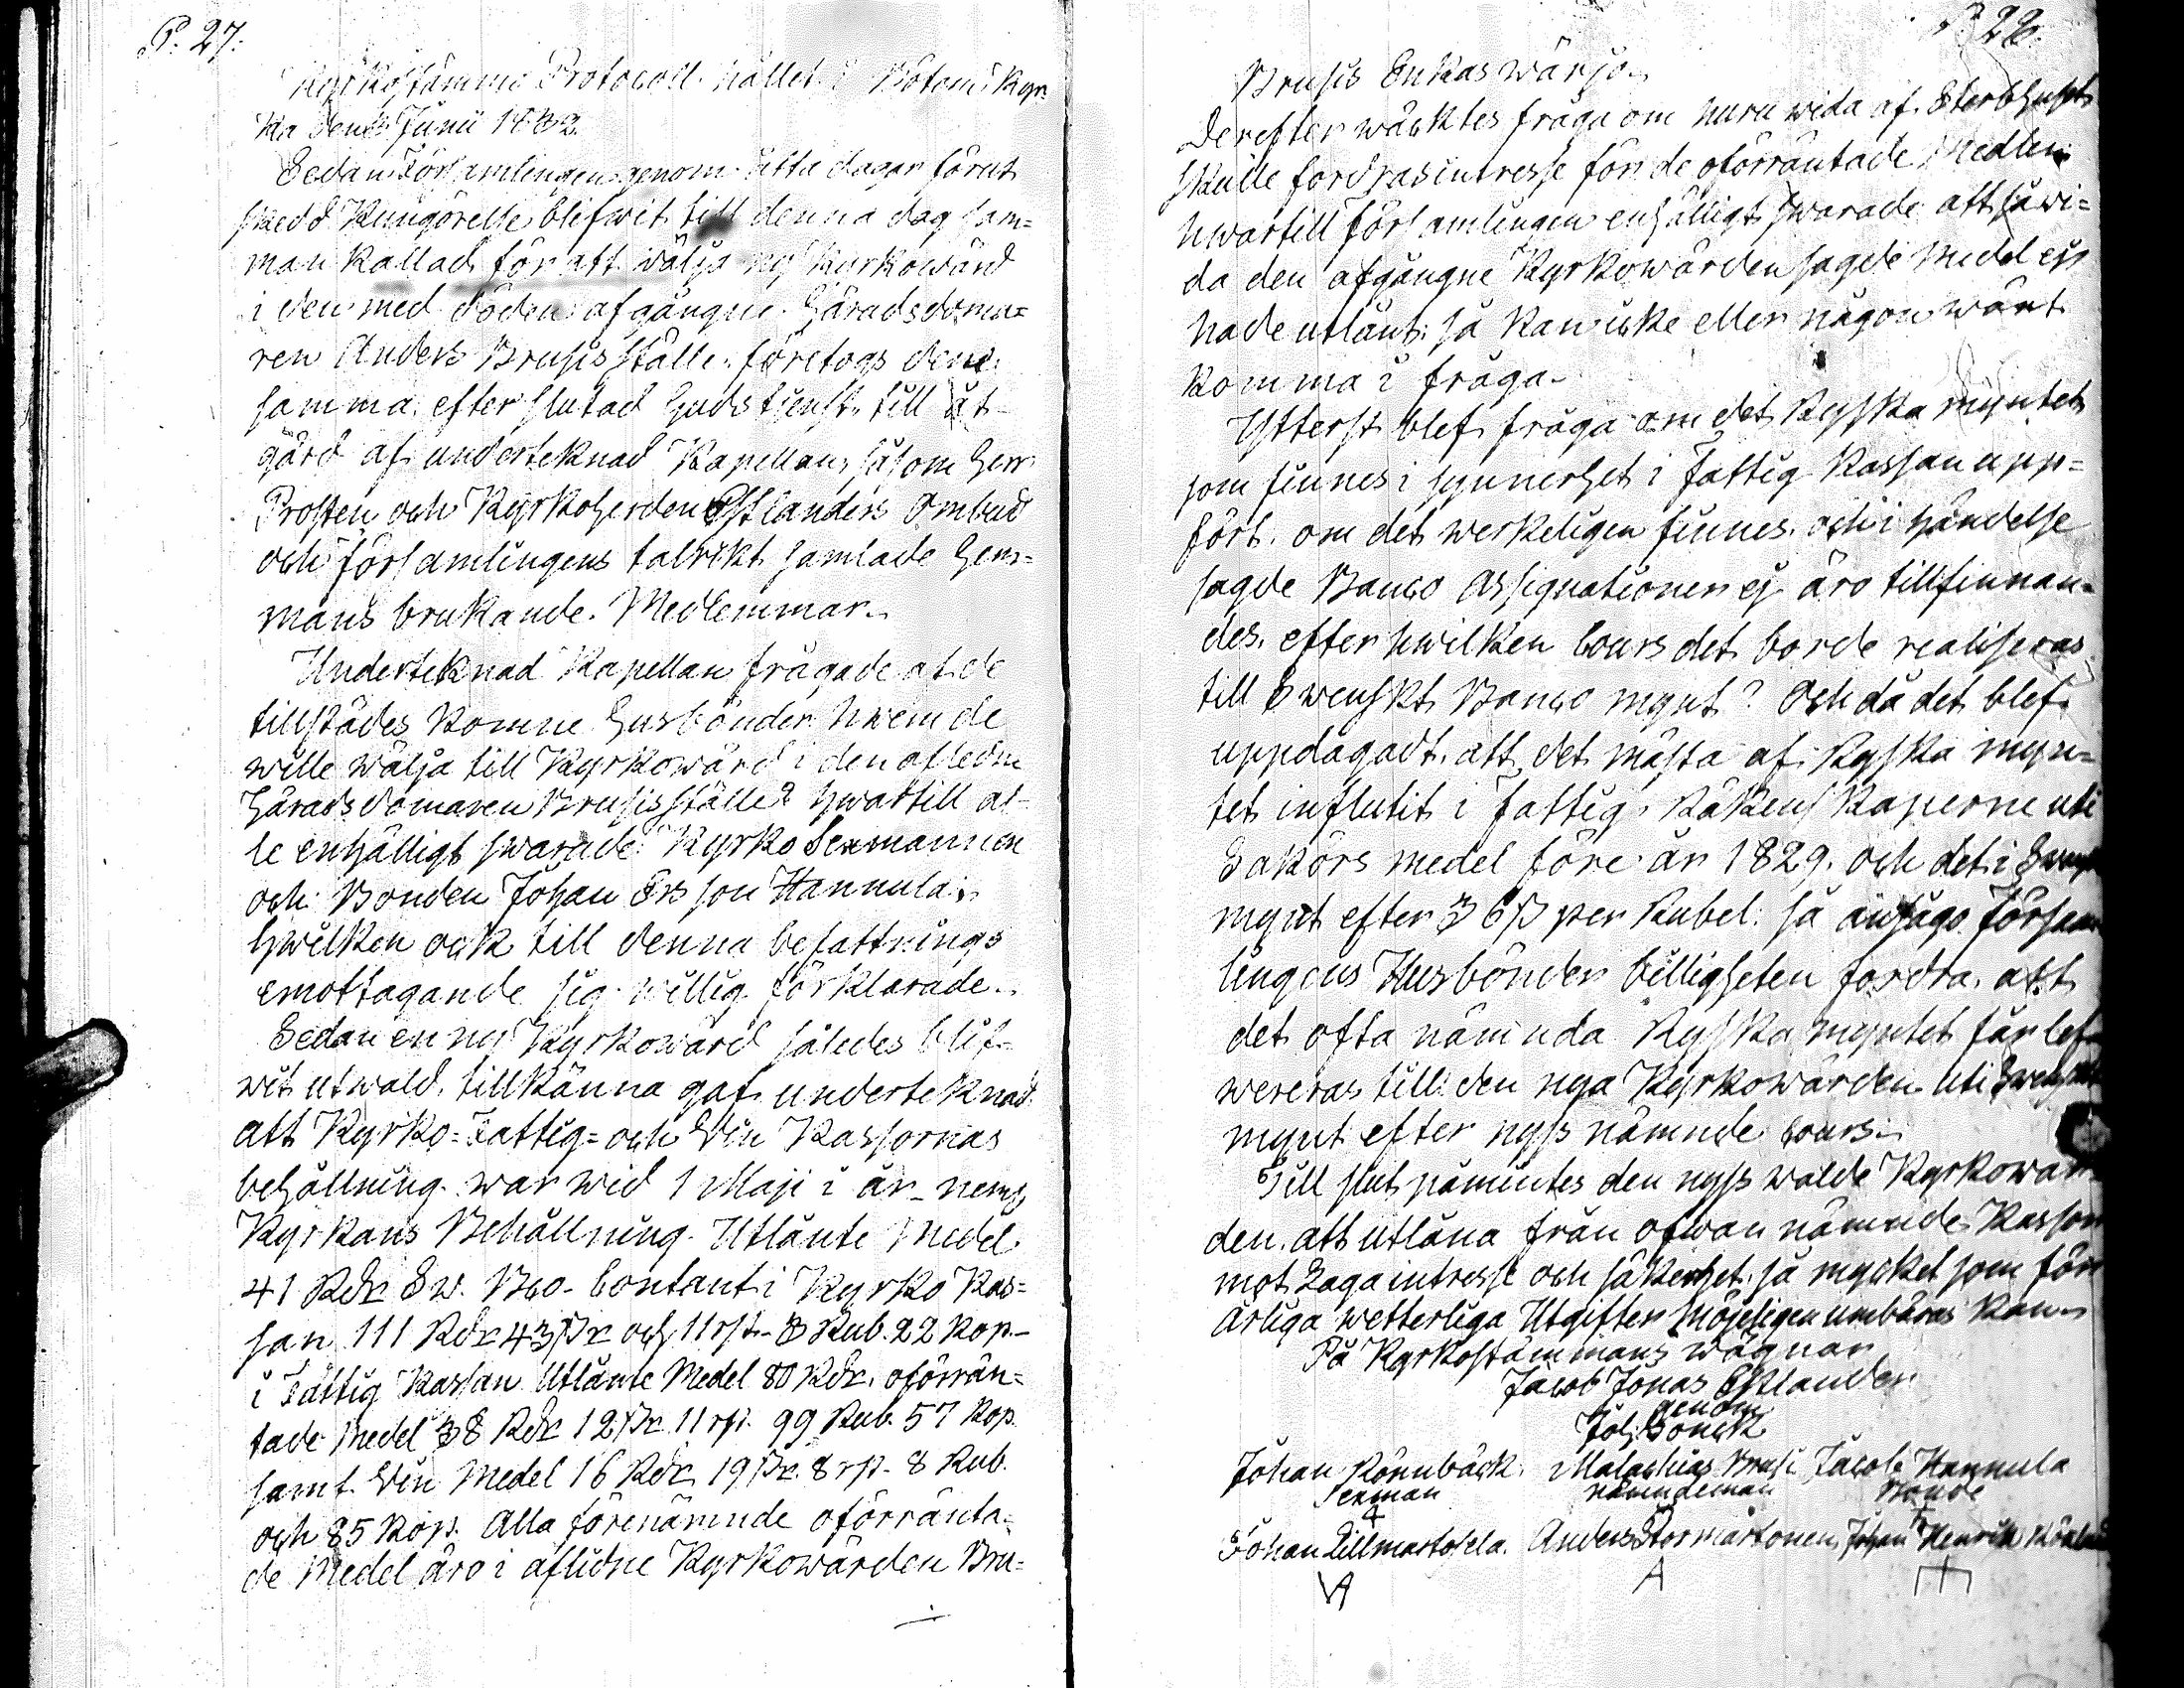 P. 27.
Kyrkostämmo Protocoll hållet i Bötom Kyr=
ka den Junii 1832.
Sedan Församlingen genom åtta dagar förut
skedd Kungörelse blifwit till denna dag sam=
man kallad för att välja ny Kyrkowärd
i den med döden afgångne Häradsdoma=
ren Anders Brusis ställe, företogs den=
samma efter slutad Gudstjenst till åt=
gärd af undertecknad Kapellan, såsom Herr
Prosten och Kyrkoherden Estlanders Ombud
och församlingens talrikt samlade Hem=
mans brukande Medlemmar.
Underteknad Kapellan frågade af de
tillstädes komne Husbönder hwem de
wille wälja till Kyrkowärd i den afledne
Häradsdomaren Brusis ställe? hwartill al=
le enhälligt swarade: Kyrko Sexmannen
och Bonden Johan Ersson Hannula;
hwilken ock till denna befattnings
emottagande sig willig förklarade.
Sedan en ny Kyrkowärd således blif=
wit utwald, tillkänna gaf underteknad
att Kyrko= Fattig= och Vin Kassornas
behållning war wid 1 Maji i år _ nemℓ
Kyrkans Behållning. Utlånte Medel
41 Rdr Sw. Bco. Contant i Kyrko Kas=
san 111 Rdr 43 sk och 11 rst. 3 Rub. 22 kop.
i Fattig Kassan Utlånte Medel 80 Rdr. oförrän=
tade Medel 38 Rdr 12 sk 11 rst. 99 Rub. 57 kop.
samt Vin Medel 16 Rdr 19 sk. 8 rst. 8 Rub.
och 85 kop. Alla förenämnde oförränta=
de Medel äro i aflidne Kyrkowärden Bru=
P. 28.
Brusis Enkas wärjo.
Derefter wäcktes fråga om huru wida af Sterbhuset
skulle fordras intresse för de oförräntade Medlen
hwartill församlingen enhälligt swarade att såwi=
da den afgångne Kyrkowärden sagde Medel ej
hade utlånt, så kan icke eller någon wäxt
komma i fråga.
Ytterst blef fråga om det Ryska myntet
som finnes i synnerhet i Fattig Kassan upp=
fört. om det werkeligen finnes, och i händelse
sagde Banco Assignationer ej äro tillfinnan=
des, efter hwilken Cours det borde realiseras
till Swenskt Banco mynt? Och då det blef
uppdagadt, att det mästa af Ryska myn=
tet influtit i Fattig Räkenskaperne uti
Sakörs medel före år 1829. och det i
mynt efter 36 sk per Rubel: så ansågo
lingens Husbönder billigheten fordra, att
det ofta nämnda Ryska myntet får lef=
wereras till den nya Kyrkowärden uti
mynt efter nyss nämnde Cours.
Till slut påmintes den nyss walde Kyrkowär=
den, att utlåna från ofwan nämnde Kassor
mot Laga intresse och säkerhet, så mycket som för
årliga wetterliga Utgifter möjeligen umbäras kan.
På Kyrkostämmans wägnar
Jacob Jonas Estlander
genom
Joh: Bonck
Johan Rönnbäck. Malachias Brusi Jacob Hannula
Sexman nämndeman Bonde
Johan Lillmartofela. Anders Stormartonen Johan Henrik
A A